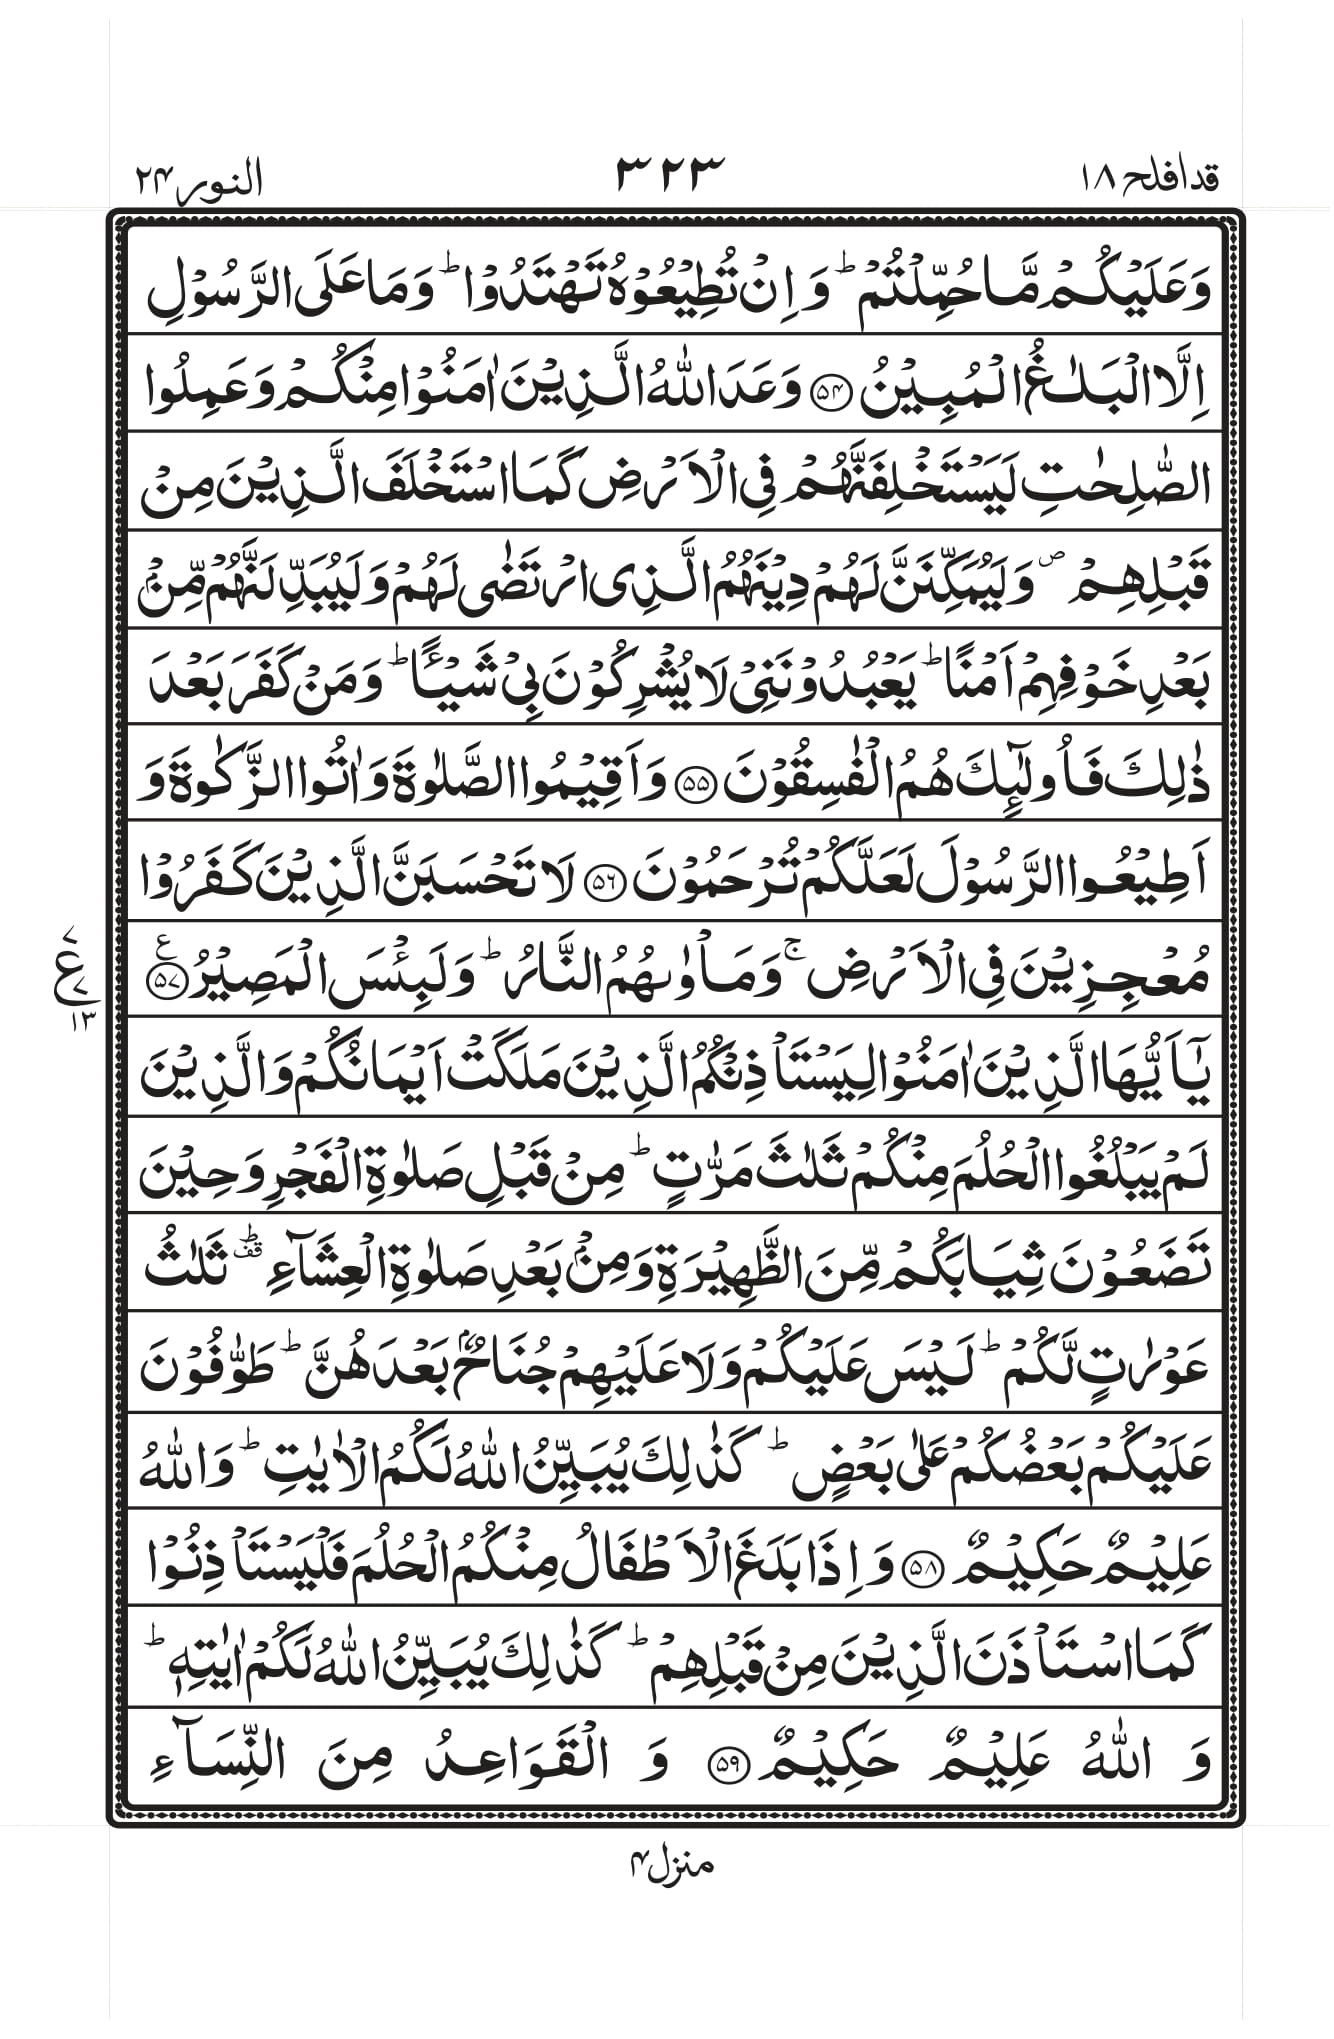 قدافلح ۱۸
۳۲۳
النور ۲۴
وَعَلَیْكُمْ مَّا حُمِّلْتُمْ ؕ وَ اِنْ تُطِیْعُوْهُ تَهْتَدُوْا ؕ وَ مَا عَلَی الرَّسُوْلِ
اِلَّا الْبَلٰغُ الْمُبِیْنُ ﴿۵۴﴾ وَعَدَ اللّٰهُ الَّذِیْنَ اٰمَنُوْا مِنْكُمْ وَ عَمِلُوا
الصّٰلِحٰتِ لَیَسْتَخْلِفَنَّهُمْ فِی الْاَرْضِ كَمَا اسْتَخْلَفَ الَّذِیْنَ مِنْ
قَبْلِهِمْ ۪ وَ لَیُمَكِّنَنَّ لَهُمْ دِیْنَهُمُ الَّذِی ارْتَضٰی لَهُمْ وَ لَیُبَدِّلَنَّهُمْ مِّنْۢ
بَعْدِ خَوْفِهِمْ اَمْنًا ؕ یَعْبُدُوْنَنِیْ لَا یُشْرِكُوْنَ بِیْ شَیْـًٔا ؕ وَ مَنْ كَفَرَ بَعْدَ
ذٰلِكَ فَاُولٰٓىِٕكَ هُمُ الْفٰسِقُوْنَ ﴿۵۵﴾ وَ اَقِیْمُوا الصَّلٰوةَ وَ اٰتُوا الزَّكٰوةَ وَ
اَطِیْعُوا الرَّسُوْلَ لَعَلَّكُمْ تُرْحَمُوْنَ ﴿۵۶﴾ لَا تَحْسَبَنَّ الَّذِیْنَ كَفَرُوْا
مُعْجِزِیْنَ فِی الْاَرْضِ ۚ وَ مَاْوٰىهُمُ النَّارُ ؕ وَ لَبِئْسَ الْمَصِیْرُ ﴿۵۷﴾ ع
۷ ع ۷ ۱۳
یٰۤاَیُّهَا الَّذِیْنَ اٰمَنُوْا لِیَسْتَاْذِنْكُمُ الَّذِیْنَ مَلَكَتْ اَیْمَانُكُمْ وَ الَّذِیْنَ
لَمْ یَبْلُغُوا الْحُلُمَ مِنْكُمْ ثَلٰثَ مَرّٰتٍ ؕ مِنْ قَبْلِ صَلٰوةِ الْفَجْرِ وَ حِیْنَ
تَضَعُوْنَ ثِیَابَكُمْ مِّنَ الظَّهِیْرَةِ وَ مِنْۢ بَعْدِ صَلٰوةِ الْعِشَآءِ ؕ۫ ثَلٰثُ
عَوْرٰتٍ لَّكُمْ ؕ لَیْسَ عَلَیْكُمْ وَ لَا عَلَیْهِمْ جُنَاحٌۢ بَعْدَهُنَّ ؕ طَوّٰفُوْنَ
عَلَیْكُمْ بَعْضُكُمْ عَلٰی بَعْضٍ ؕ كَذٰلِكَ یُبَیِّنُ اللّٰهُ لَكُمُ الْاٰیٰتِ ؕ وَ اللّٰهُ
عَلِیْمٌ حَكِیْمٌ ﴿۵۸﴾ وَ اِذَا بَلَغَ الْاَطْفَالُ مِنْكُمُ الْحُلُمَ فَلْیَسْتَاْذِنُوْا
كَمَا اسْتَاْذَنَ الَّذِیْنَ مِنْ قَبْلِهِمْ ؕ كَذٰلِكَ یُبَیِّنُ اللّٰهُ لَكُمْ اٰیٰتِهٖ ؕ
وَ اللّٰهُ عَلِیْمٌ حَكِیْمٌ ﴿۵۹﴾ وَ الْقَوَاعِدُ مِنَ النِّسَآءِ
منزل ۴